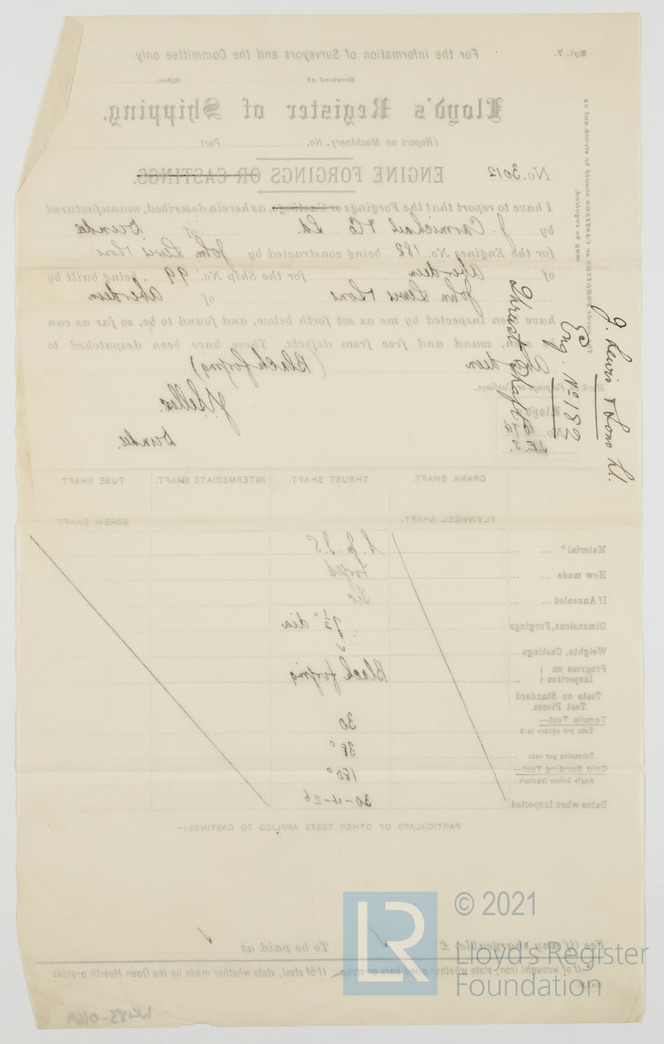 For the information of Surveyors and the Committee only.
Rpt. 7.
Received at
Office,
Lloyd's Register of Shipping.
(Report on Machinery, No. Port
No. 3012 ENGINE FORGINGS OR CASTINGS.
I have to report that the Forgings or Castings, as herein described, manufactured
by J. Carmichael & Co Ld. of Dundee
for the Engines No. 182 being constructed by John Lewis & Sons
of Aberdeen for the Ship No. 99, being built by
John Lewis & Sons of Aberdeen
have been inspected by me as set forth below, and found to be, so far as can
be seen, sound and free from defects. These have been despatched to
Aberdeen (Black forging)
Dundee
J. Lewis & Sons Ld.
Eng. No 182
Thrust Shaft
Lloyd's
No. 674
J.E.S.
CRANK SHAFT. THRUST SHAFT. INTERMEDIATE SHAFT. TUBE SHAFT.
FLYWHEEL SHAFT. SCREW SHAFT
Material*
How made Forged
If Annealed Yes
Dimensions, Forgings 7½" dia
Weights, Castings
Progress on Inspection Black forging
Tests on Standard Test Pieces.
Tensile Test—
Tons per square inch 30
Extension per cent 38°
Cold Bending Test—
Angle before fracture 180°
Dates when Inspected 30-4-26
PARTICULARS OF OTHER TESTS APPLIED TO CASTINGS:-
Fee (if any chargeable) £ To be paid at
*If of wrought iron, state whether If of steel, state whether made by the Open Hearth process
© 2021
LR
Lloyd's Register
Foundation